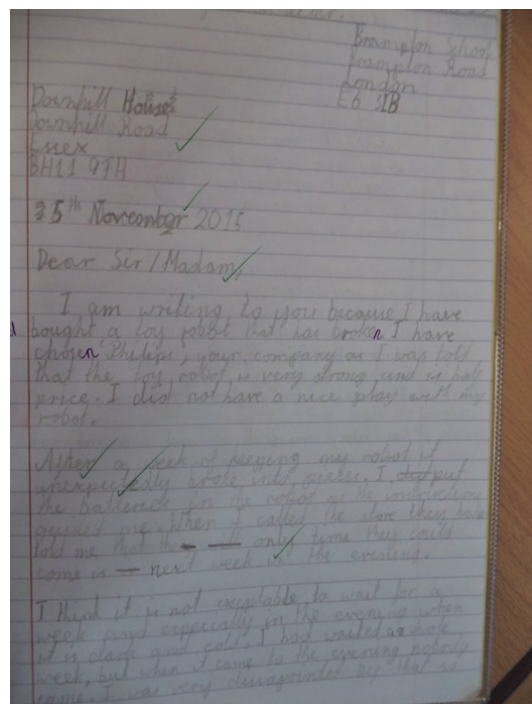 Brampton School
Brampton Road
London
E6 3IB
Downhill House
Downhill Road
Essex
BH11 9TH
25th November 2015
Dear Sir/Madam,
I am writing to you because I have
bought a toy robot that has broken I have
chosen Philips, your company as I was told
that the toy robot is very strong and is half
price. I did not have a nice play with my
robot.
After a week of my robot it
unexpectedly broke into pieces. I put
the batteries in the robot as the instructions
me. When I called the store they
told me that the only time they could
come is next week in the evening.
I think it is not exeptable to wait for a
week and especially in the evening when
it is dark and cold. I had waited a whole
week, but when it came to the evening nobody
came. I was very dissapointed by that so